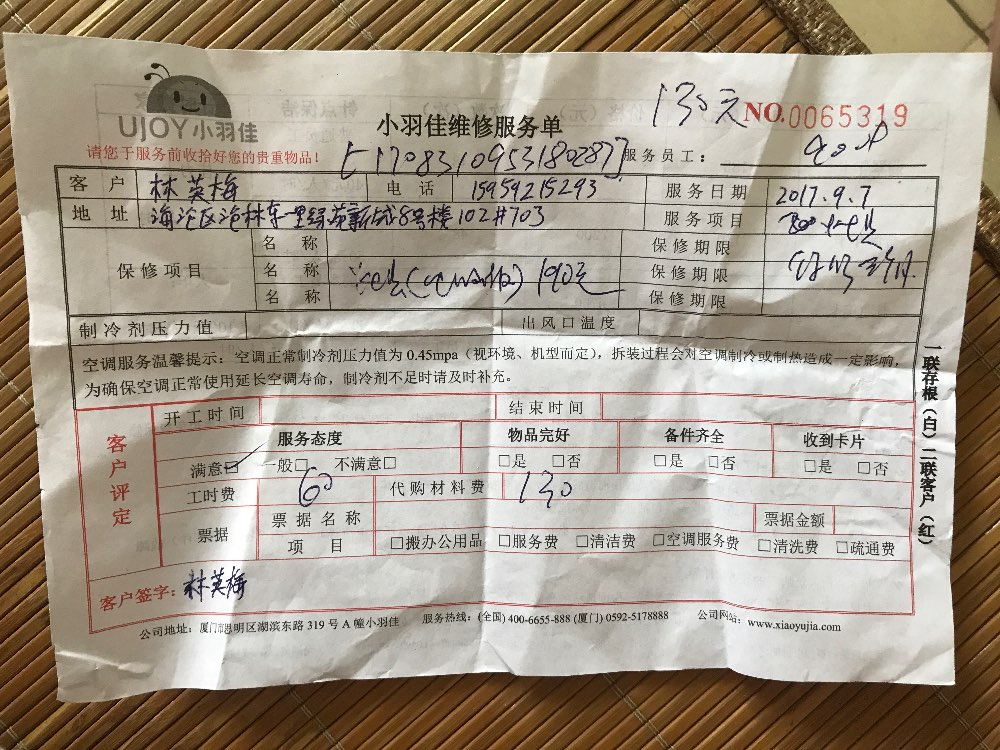 UJOY小羽佳
小羽佳维修服务单
130元
NO.0065319
请您于服务前收拾好您的贵重物品!
【1708310953180287】
服务员工:
客户 林英梅 电话 15959215293 服务日期 2017.9.7
地址 海沧区沧林东一里绿苑新城8号楼102#703 服务项目
保修项目
名称 保修期限
名称 190元 保修期限
名称 保修期限
制冷剂压力值 出风口温度
空调服务温馨提示:空调正常制冷剂压力值为0.45mpa(视环境、机型而定),拆装过程会对空调制冷或制热造成一定影响,
为确保空调正常使用延长空调寿命,制冷剂不足时请及时补充。
一联存根(白)二联客户(红)
客户评定
开工时间 结束时间
服务态度 物品完好 备件齐全 收到卡片
满意☑ 一般□ 不满意□ □是 □否 □是 □否 □是 □否
工时费 60 代购材料费 130
票据 票据名称 票据金额
项目 □搬办公用品 □服务费 □清洁费 □空调服务费 □清洗费 □疏通费
客户签字:林英梅
公司地址:厦门市思明区湖滨东路319号A幢小羽佳 服务热线:(全国)400-6655-888 (厦门)0592-5178888 公司网站:www.xiaoyujia.com